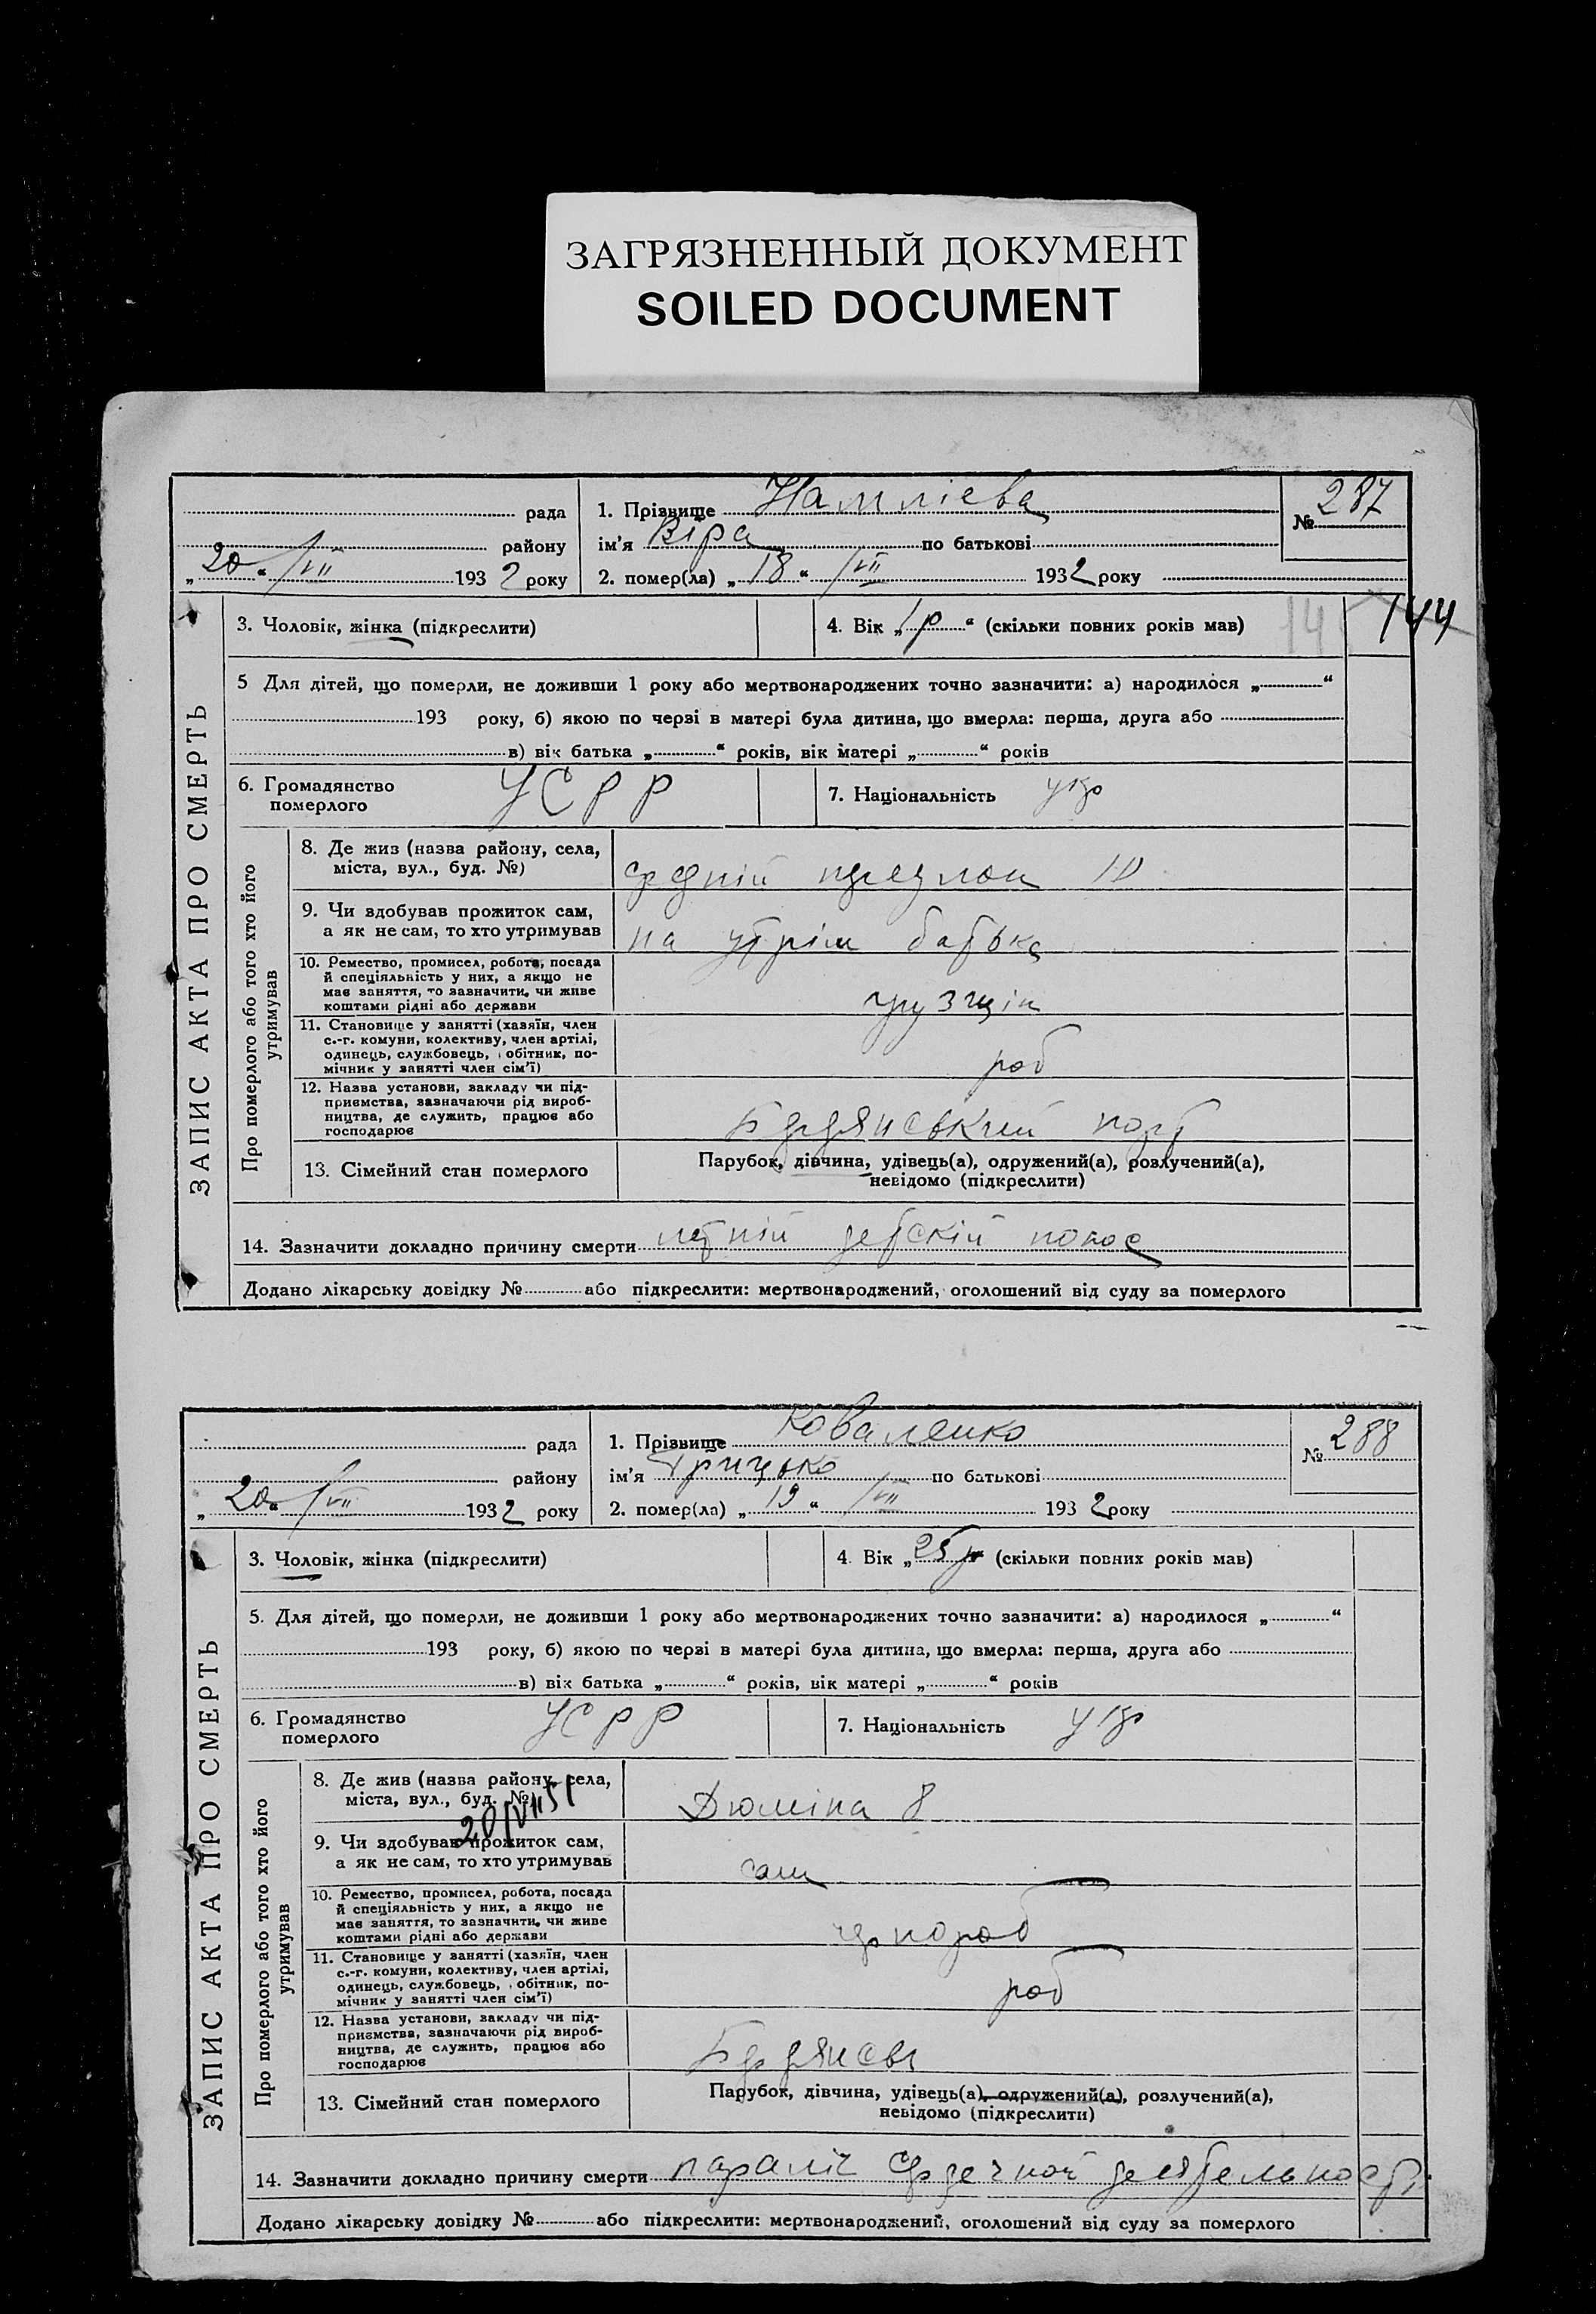 ЗАГРЯЗНЕННЫЙ ДОКУМЕНТ
SOILED DOCUMENT
рада
району
„ 20 “ /VII 1932 року
1. Прізвище
ім'я Віра по батькові
2. помер(ла) „ 18 “ /VII 1932 року
№ 287
ЗАПИС АКТА ПРО СМЕРТЬ
3. Чоловік, жінка (підкреслити)
4. Вік „ 1 р “ (скільки повних років мав)
144
5 Для дітей, що померли, не доживши 1 року або мертвонароджених точно зазначити: а) народилося „ “
193 року, б) якою по черзі в матері була дитина, що вмерла: перша, друга або
в) вік батька „ “ років, вік матері „ “ років
6. Громадянство
померлого
УСРР
7. Національність укр
Про померлого або того хто його
утримував
8. Де жив (назва району, села,
міста, вул., буд. №)
10
9. Чи здобував прожиток сам,
а як не сам, то хто утримував
на утрим батька
10. Ремество, промисел, робота, посада
й спеціяльність у них, а якщо не
має заняття, то зазначити, чи живе
коштами рідні або держави
грузщік
11. Становище у занятті (хазяїн, член
с.-г. комуни, колективу, член артілі,
одинець, службовець, обітник, по-
мічник у занятті член сім'ї)
роб
12. Назва установи, закладу чи під-
приємства, зазначаючи рід вироб-
ництва, де служить, працює або
господарює
Бердянський порт
13. Сімейний стан померлого
Парубок, дівчина, удівець(а), одружений(а), розлучений(а),
невідомо (підкреслити)
14. Зазначити докладно причину смерти летній детскій понос
Додано лікарську довідку № або підкреслити: мертвонароджений, оголошений від суду за померлого
рада
району
„ 20 “ /VII 1932 року
1. Прізвище Коваленко
ім'я Грицько по батькові
2. помер(ла) „ 19 “ /VII 1932 року
№ 288
ЗАПИС АКТА ПРО СМЕРТЬ
3. Чоловік, жінка (підкреслити)
4. Вік „ 25 р “ (скільки повних років мав)
5. Для дітей, що померли, не доживши 1 року або мертвонароджених точно зазначити: а) народилося „ “
193 року, б) якою по черзі в матері була дитина, що вмерла: перша, друга або
в) вік батька „ “ років, вік матері „ “ років
6. Громадянство
померлого
УСРР
7. Національність укр
Про померлого або того хто його
утримував
8. Де жив (назва району, села,
міста, вул., буд. №)
Дюміна 8
20/VII 51
9. Чи здобував прожиток сам,
а як не сам, то хто утримував
сам
10. Ремество, промисел, робота, посада
й спеціяльність у них, а якщо не
має заняття, то зазначити, чи живе
коштами рідні або держави
чорнороб
11. Становище у занятті (хазяїн, член
с.-г. комуни, колективу, член артілі,
одинець, службовець, обітник, по-
мічник у занятті член сім'ї)
роб
12. Назва установи, закладу чи під-
приємства, зазначаючи рід вироб-
ництва, де служить, працює або
господарює
13. Сімейний стан померлого
Парубок, дівчина, удівець(а), одружений(а), розлучений(а),
невідомо (підкреслити)
14. Зазначити докладно причину смерти параліч сердечной деятельності
Додано лікарську довідку № або підкреслити: мертвонароджений, оголошений від суду за померлого